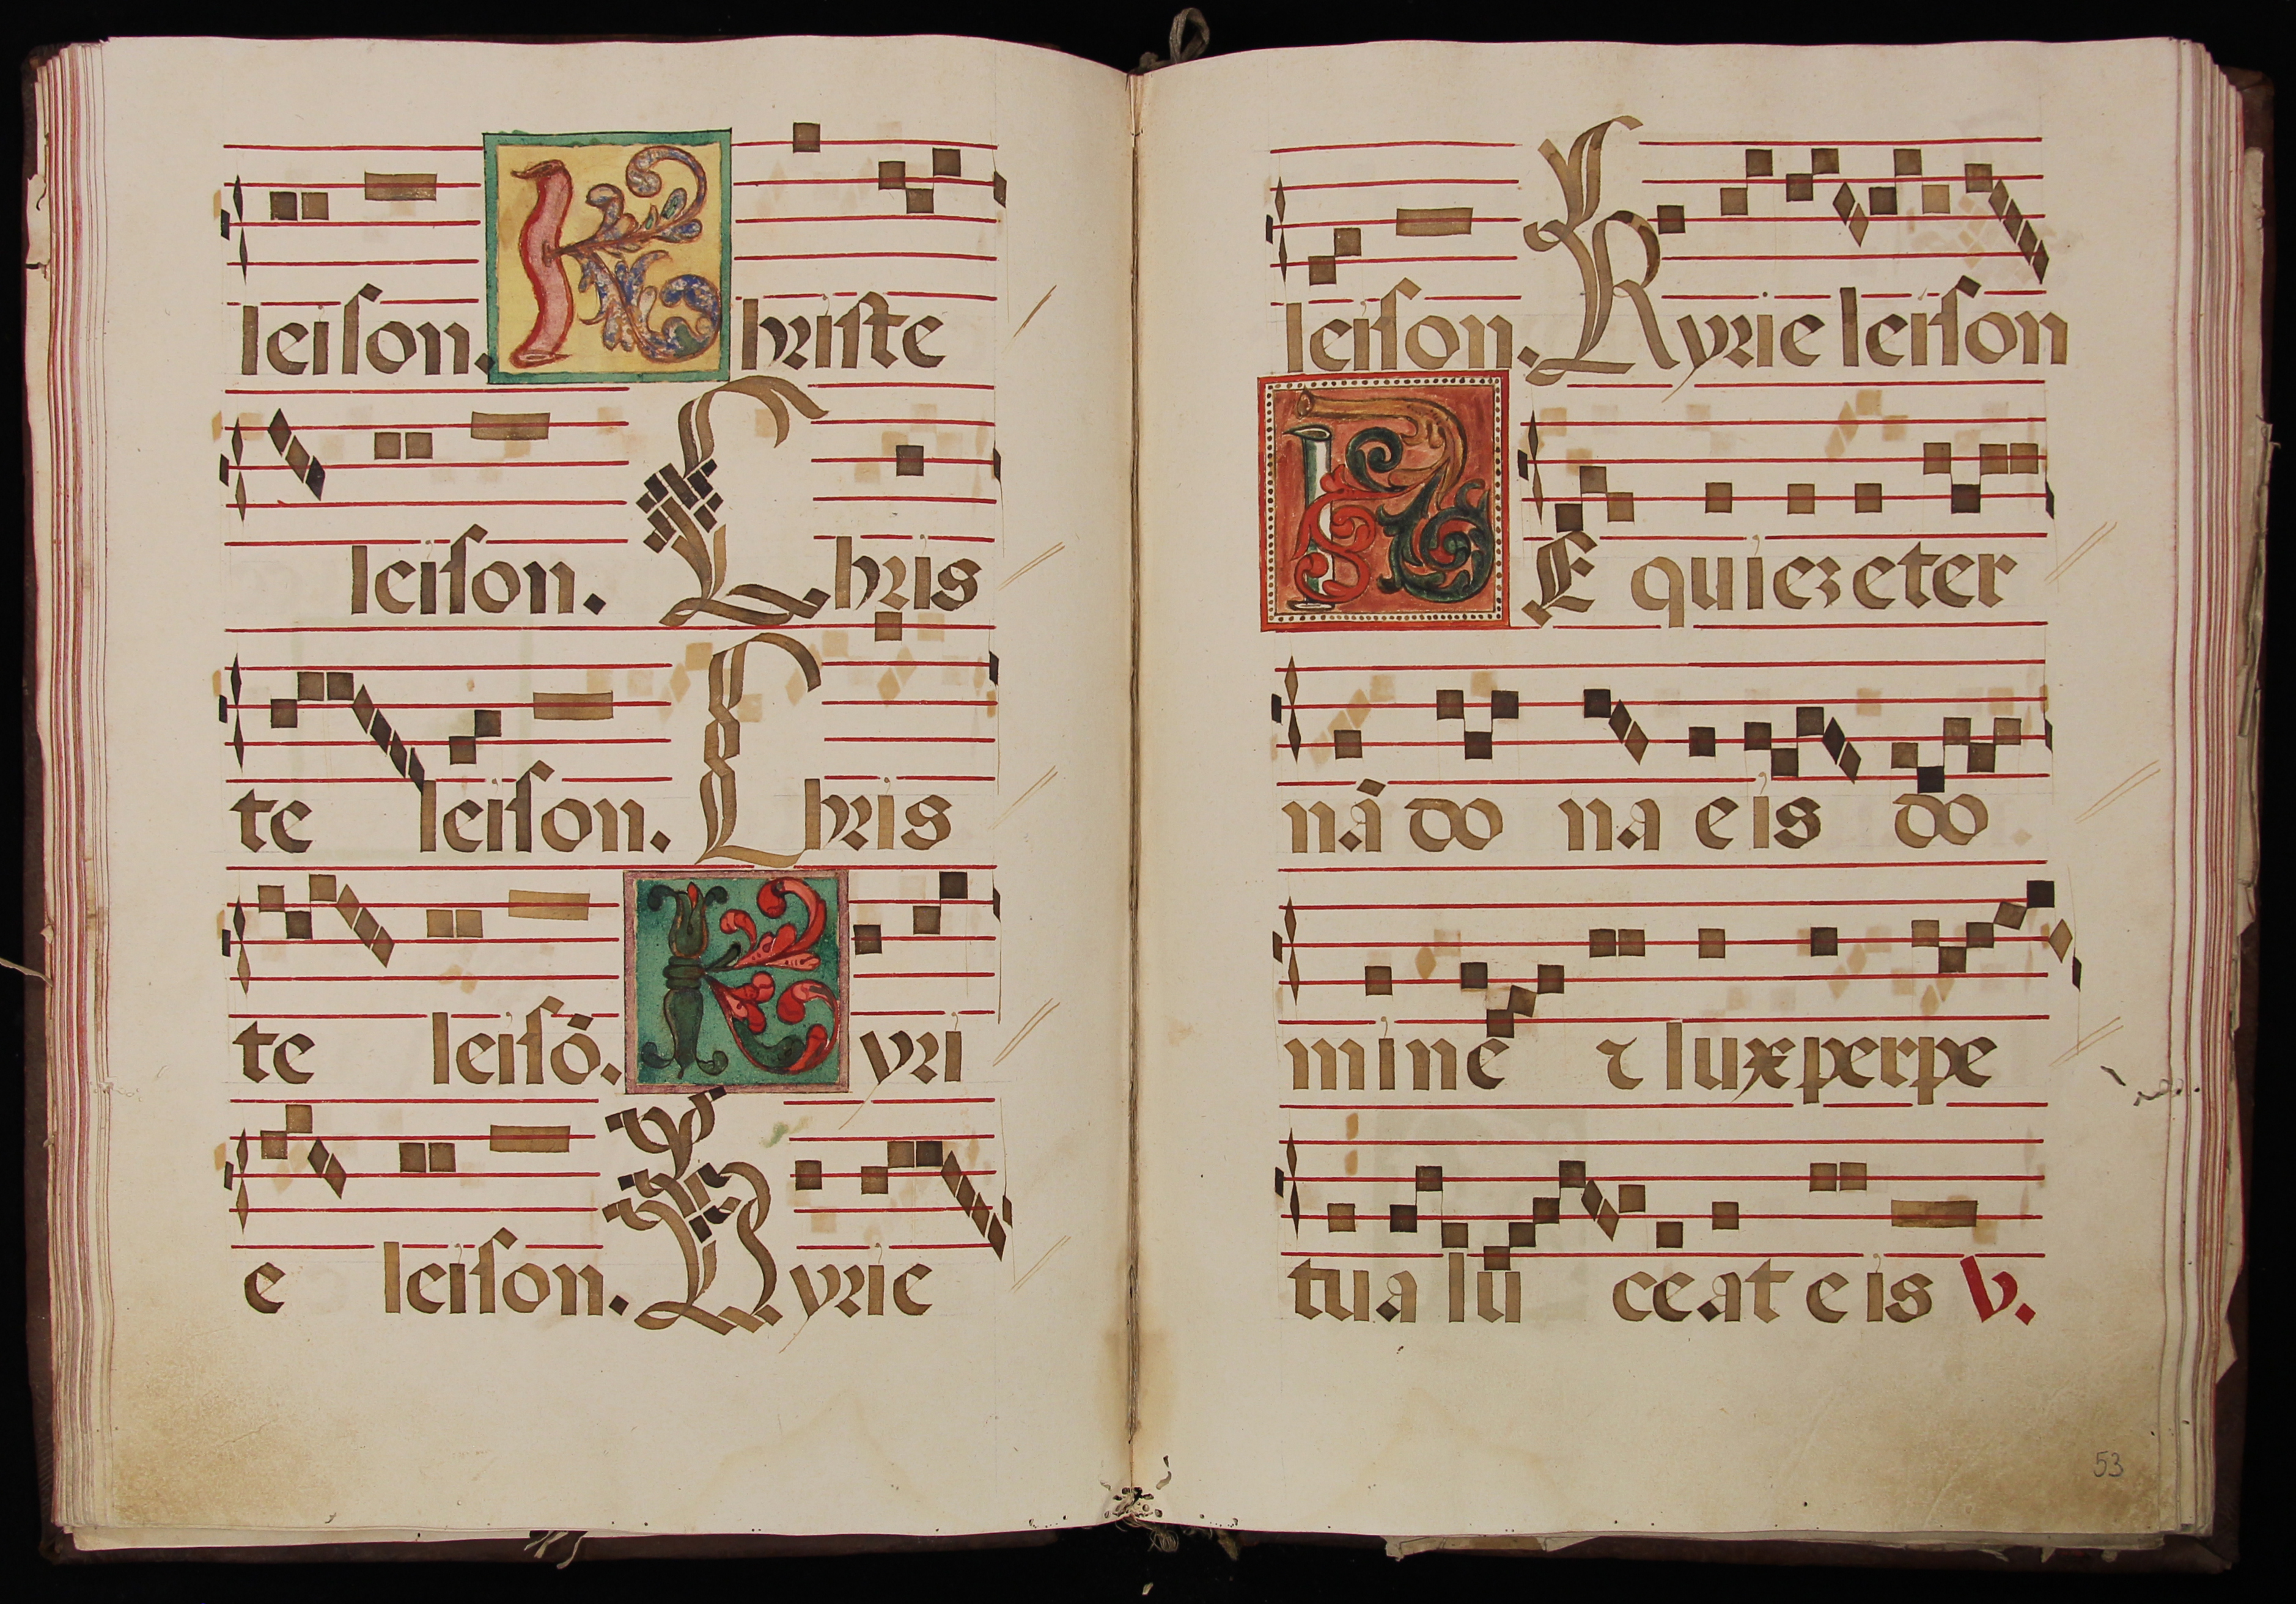 leiſon. Khriſte
leiſon. Chris
te leiſon. Chris
te leiſō. Kyri
e leiſon. Kyrie
leiſon. Kyrie leiſon
REquieʒ eter
nā do na eis do
mine ⁊ lux perpe
tua lu ceat eis V.
53